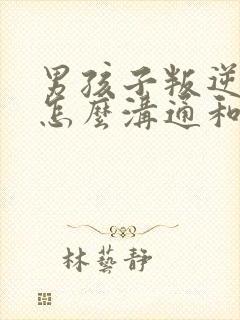 男孩子叛逆
怎麼溝通和
林藝靜